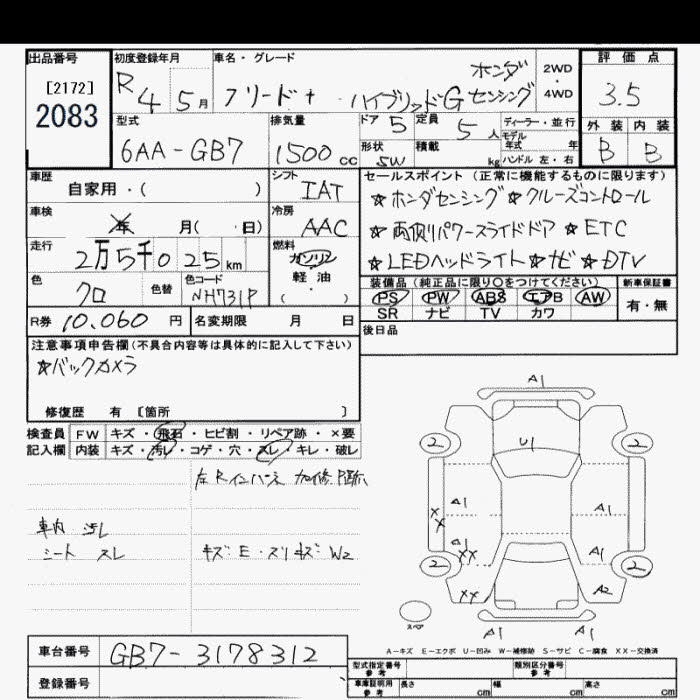 出品番号
[2172]
2083
初度登録年月
R 4 5月
車名・グレード
フリード+ ハイブリッドG ホンダ センシング
2WD・4WD
評価点
3.5
外装 内装
B B
型式
6AA-GB7
排気量
1500cc
ドア 5
定員 5人
ディーラー・並行
モデル年式 年
形状 SW
積載 kg
ハンドル 左・右
車歴
自家用・( )
シフト
IAT
セールスポイント(正常に機能するものに限ります)
☆ホンダセンシング☆クルーズコントロール
☆両側パワースライドドア ☆ETC
☆LEDヘッドライト☆ナビ☆DTV
車検
年 月( 日)
冷房
AAC
走行
2万5千025km
燃料
ガソリン
軽油
( ・ )
色
クロ
色替
色コード
NH731P
装備品(純正品に限り○をつけてください)
PS PW ABS エアB AW
SR ナビ TV カワ
新車保証書
有・無
R券 10,060円
名変期限 月 日
後日品
注意事項申告欄(不具合内容等は具体的に記入して下さい)
☆バックカメラ
修復歴 有 [箇所 ]
検査員記入欄
FW キズ・飛石・ヒビ割・リペア跡・×要
内装 キズ・汚レ・コゲ・穴・スレ・キレ・破レ
左Rインパネ 加修
車内 汚レ
シート スレ
キズ・E・スリキズ・W2
A1
2 2
U1
A1 A1
X
X
A1 XX A1
2 2
XX A2
スペア
A1 A1
A-キズ E-エクボ U-凹み W-補修跡 S-サビ C-腐食 XX-交換済
車台番号 GB7-3178312
登録番号
型式指定番号 参考
類別区分番号 参考
車庫証明用 参考 長さ cm 幅 cm 高さ cm